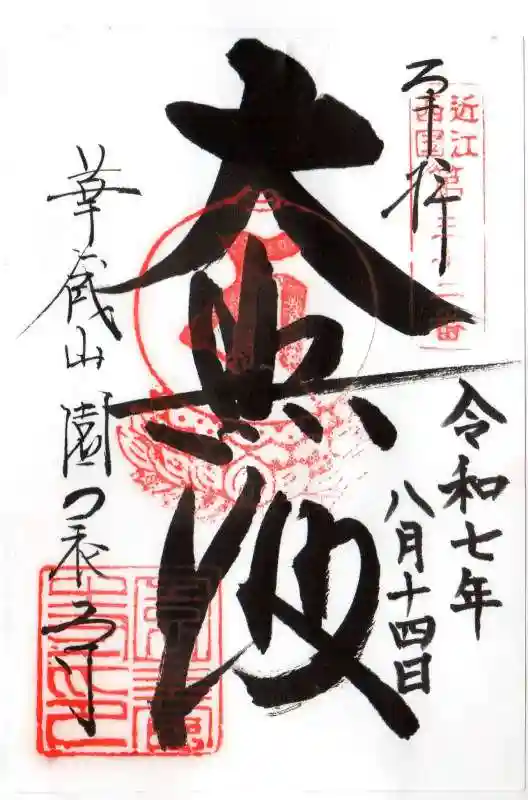 奉拝
近江西国第三十二番
大悲殿
令和七年
八月十四日
華蔵山 園養寺